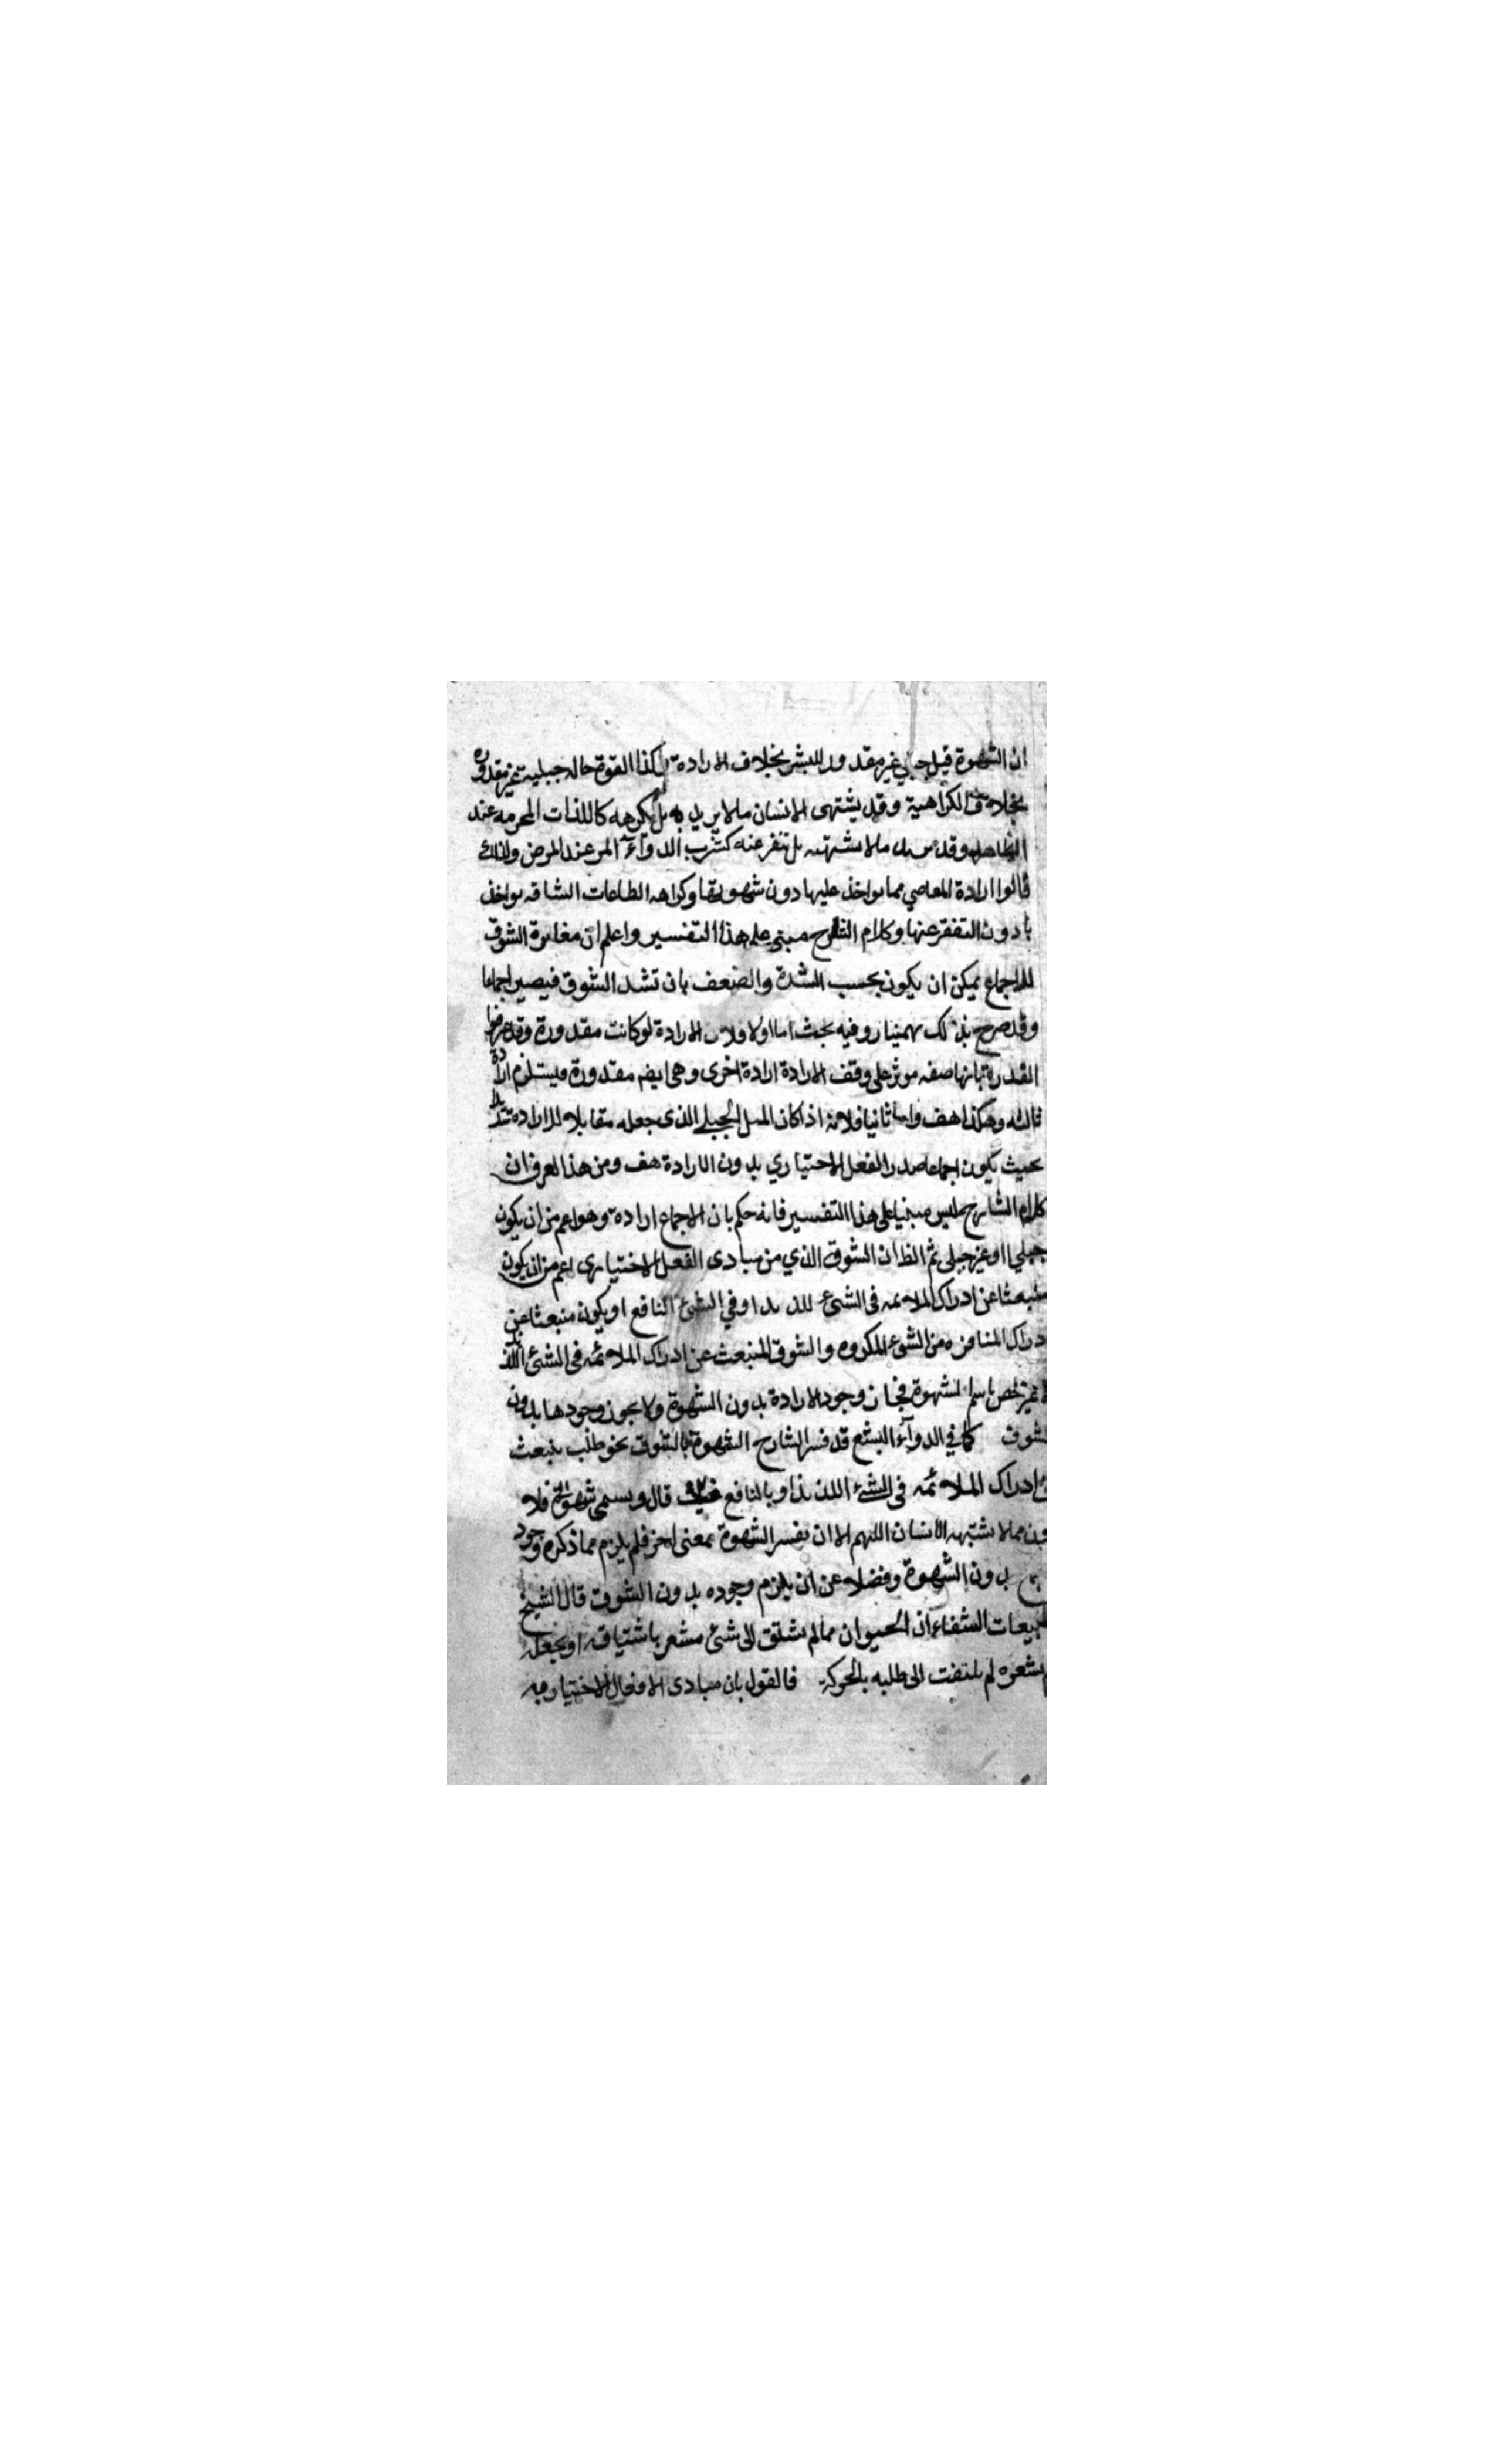 ان الشهوة قيل جبلي غير مقدور للبشر بخلاف الارادة كذا القوة حالة جبلية غير مقدوره
بخلاف الكراهية وقد يشتهى الانسان ما لا يريده بل يكرهه كاللذات المحرمة عند
وقد يريد ما لا يشتهيه بل تنفر عنه كشرب الدوآء المر عند المرض ولذلك
قالوا ارادة المعاصي مما يواخذ عليها دون شهوتها وكراهه الطاعات الشاقه يواخذ
دون التنفر عنها وكلام الشارح مبنى على هذا التفسير واعلم ان مغايرة الشوق
للاجماع يمكن ان يكون بحسب الشدة والضعف بان تشد الشوق فيصير اجماعا
وقد صرح بذلك بهمنيار وفيه بحث اما اولا فلان الارادة لو كانت مقدورة وقد عرفوا
القدرة بانها صفه موثر على وقف الارادة ارادة اخرى وهى ايضم مقدورة فيستلزم ارادة
ثالثه وهكذا هف واما ثانيا فلانه اذا كان الميل الجبلي الذى جعله مقابلا للارادة
بحيث يكون اجماعا صدر الفعل الاختياري بدون الارادة هف ومن هذا العرف ان
كلام الشارح ليس مبنيا على هذا التفسير فانه حكم بان الاجماع ارادة وهو اعم من ان يكون
جبليا او غير جبلى ثم الظ ان الشوق الذي من مبادى الفعل الاختيارى اعم من ان يكون
منبعثا عن ادراك الملائمه فى الشئ اللذيذ او في الشئ النافع او يكون منبعثا عن
ادراك المنافره من الشئ المكروه والشوق المنبعث عن ادراك الملائمه فى الشئ اللذيذ
خص باسم الشهوة فجاز وجود الارادة بدون الشهوة ولا يجوز وجودها بدون
الشوق كما في الدوآء البشع قد فسر الشارح الشهوة بالشوق نحو طلب ينبعث
ادراك الملائمه فى الشئ اللذيذ او بالنافع قال ويسمى شهوة فلا
مما لا يشتهيه الانسان اللهم الا ان يفسر الشهوة بمعنى اخر فلم يلزم مما ذكره وجود
بدون الشهوة وفضلا عن ان يلزم وجوده بدون الشوق قال الشيخ
طبيعات الشفاء ان الحيوان ما لم يشتق الى شئ مشعر باشتياقه او يجعله
يشعره لم يلتفت الى طلبه بالحركة فالقول بان مبادى الافعال الاختياريه